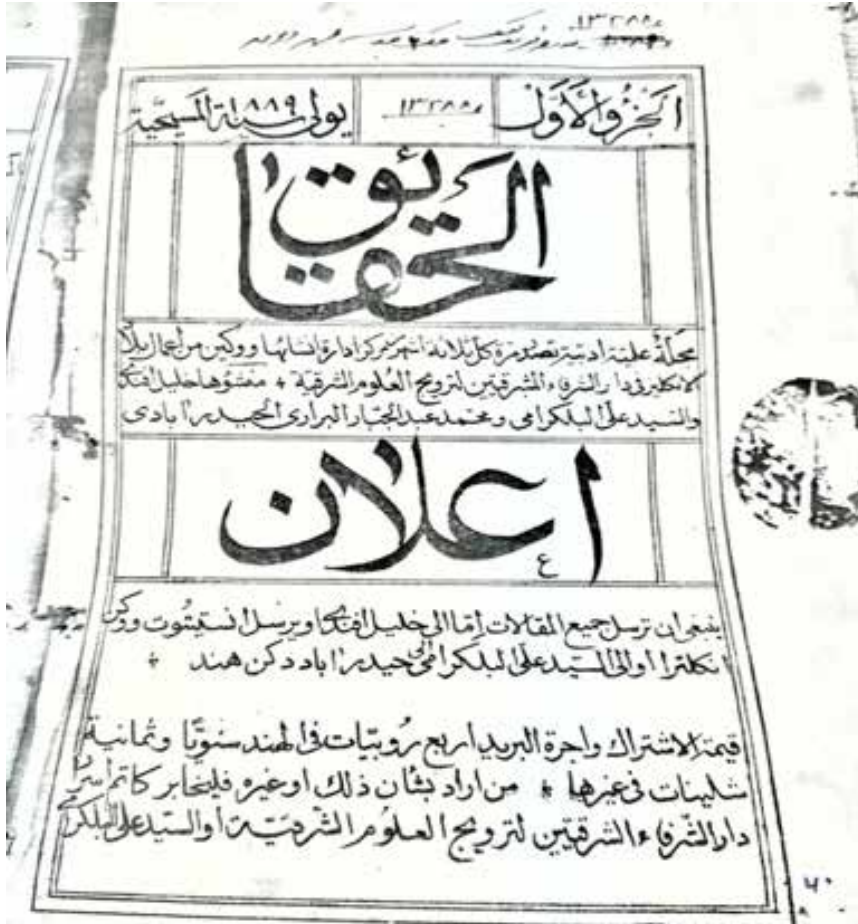 ١٣٢٨٨٤
الجزء الأول
١٣٢٨٨٤
يولى سنة ١٨٨٩ المسيحية
الحقايئق
مجلة علمية ادبية تصدر مرة كل ثلاثة اشهر مركز ادارة انشائها ووكين من اعمال بلاد
الانكليز فى دار الشرفاء المشرقيين لترويج العلوم الشرقية * منشؤها خليل افندى
والسيد على البلكرامى ومحمد عبد الجبار البرارى الحيدرابادى
اعلان
ينبغى ان ترسل جميع المقالات اما الى خليل افندى اوينتل انستيتوت ووكن
انكلترا او الى السيد على البلكرامى حيدراباد دكن هند *
قيمة الاشتراك واجرة البريد اربع روبيات فى الهند سنويا وثمانية
شلينات فى غيرها * من اراد بشان ذلك او غيره فليخابر كاتم اسرار
دار الشرفاء الشرقيين لترويج العلوم الشرقية او السيد على البلكرامى